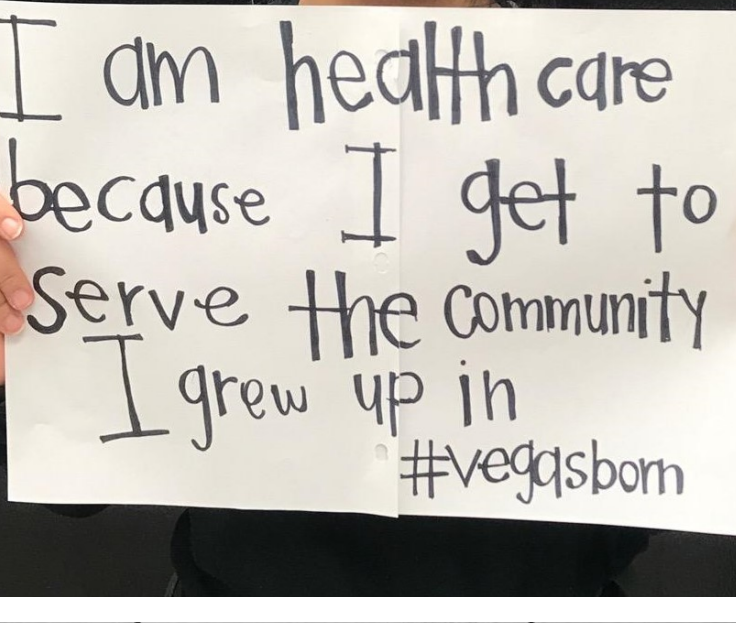 I am health care
because I get to
serve the community
I grew up in
#vegasborn